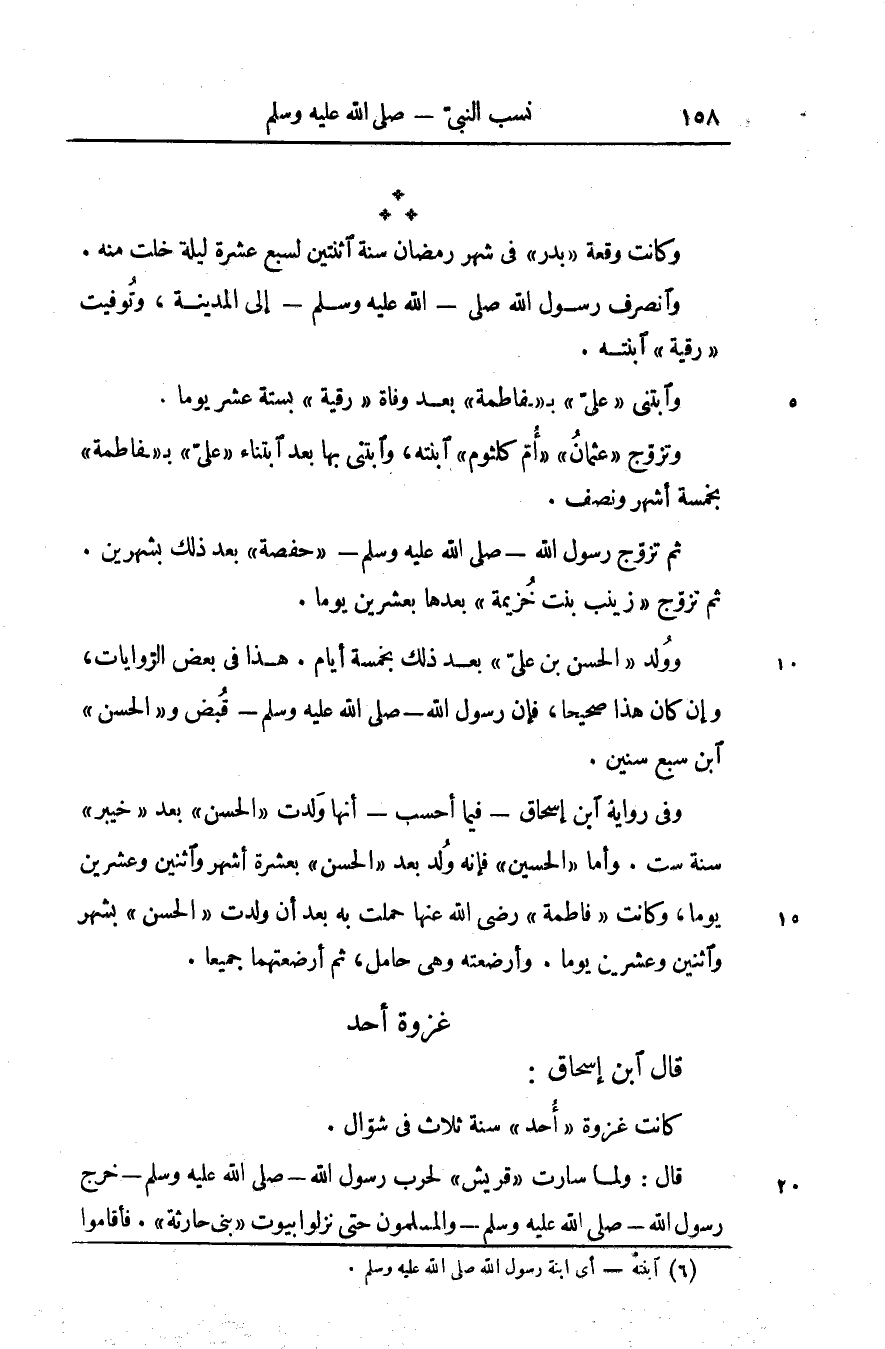 ١٥٨ نسب النبىّ — صلى الله عليه وسلم
وكانت وقعة «بدر» فى شهر رمضان سنة آثنتين لسبع عشرة ليلة خلت منه .
وآنصرف رسول الله صلى — الله عليه وسلم — إلى المدينة ، وتُوفيت
« رقية » آبنته .
٥ وآبتنى « علىّ » بـ«ـفاطمة» بعد وفاة « رقية » بستة عشر يوما .
وتزوّج «عثمانُ» «أُم كلثوم» آبنته، وآبتنى بها بعد آبتناء «علىّ» بـ«ـفاطمة»
بخمسة أشهر ونصف .
ثم تزوّج رسول الله — صلى الله عليه وسلم — «حفصة» بعد ذلك بشهرين .
ثم تزوّج « زينب بنت خُزيمة » بعدها بعشرين يوما .
١٠ ووُلد « الحسن بن علىّ » بعد ذلك بخمسة أيام . هذا فى بعض الروايات،
وإن كان هذا صحيحا، فإن رسول الله — صلى الله عليه وسلم — قُبض و« الحسن »
آبن سبع سنين .
وفى رواية آبن إسحاق — فيما أحسب — أنها وَلدت «الحسن» بعد « خيبر»
سنة ست . وأما «الحسين» فإنه وُلد بعد «الحسن» بعشرة أشهر وآثنين وعشرين
١٥ يوما، وكانت « فاطمة » رضى الله عنها حملت به بعد أن ولدت « الحسن » بشهر
وآثنين وعشرين يوما . وأرضعته وهى حامل، ثم أرضعتهما جميعا .
غزوة أحد
قال آبن إسحاق :
كانت غزوة « أُحد» سنة ثلاث فى شوّال .
٢٠ قال : ولما سارت «قريش» لحرب رسول الله — صلى الله عليه وسلم — خرج
رسول الله — صلى الله عليه وسلم — والمسلمون حتى نزلوا بيوت «بنى حارثة» . فأقاموا
(٦) آبنته — أى ابنة رسول الله صلى الله عليه وسلم .